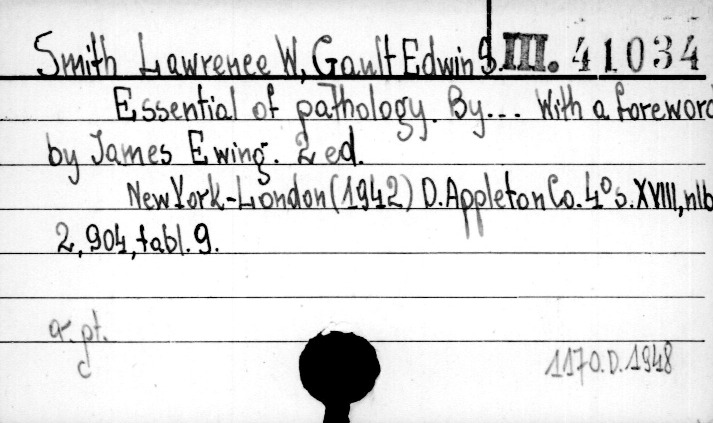 Smith Lawrence W, Gault Edwin S. III. 41034
Essential of pathology. By... With a foreword
by James Ewing. 2 ed.
New York-London (1942) D. Appleton Co. 4° s. XVIII, nlb
2, 904, tabl. 9.
a. pt.
1170.D.1948